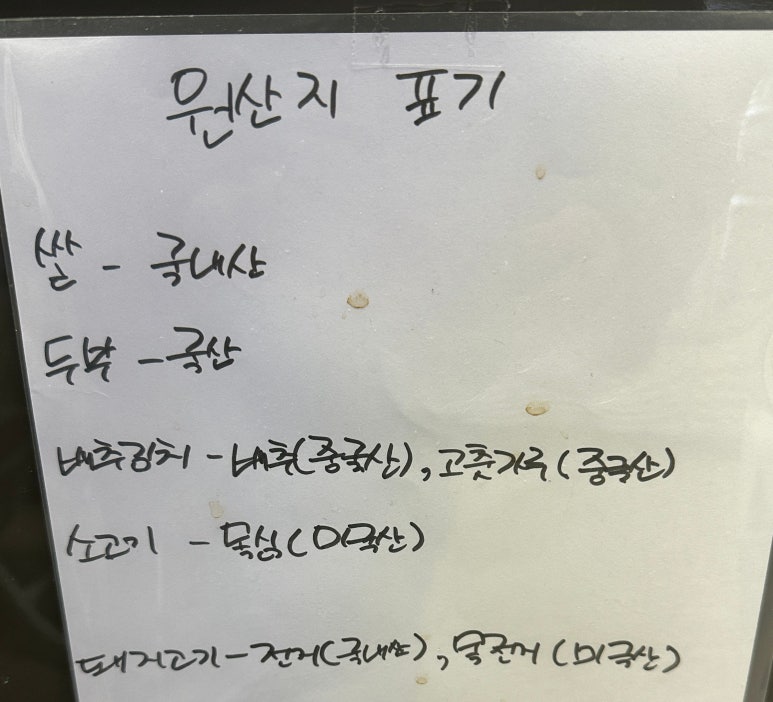 원산지 표기
쌀 - 국내산
두부 - 국산
배추김치 - 배추(중국산), 고춧가루(중국산)
소고기 - 목심(미국산)
돼지고기 - 전지(국내산), 목전지(미국산)